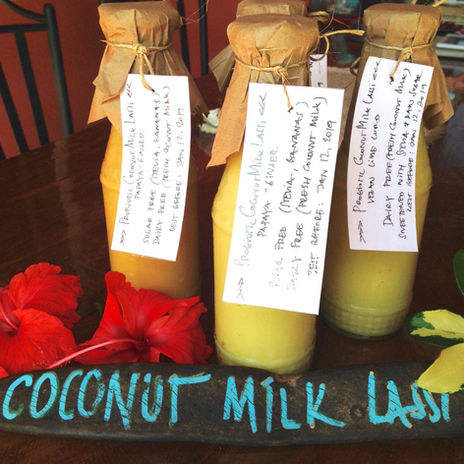 >>> PROBIOTIC COCONUT MILK LASSI <<<
PAPAYA - GINGER
SUGAR FREE (STEVIA - BANANAS)
DAIRY FREE (FRESH COCONUT MILK)
BEST BEFORE: JAN 12, 2019
>>> PROBIOTIC COCONUT MILK LASSI <<<
PAPAYA - GINGER
FREE (STEVIA - BANANAS)
DAIRY FREE (FRESH COCONUT MILK)
BEST BEFORE: JAN 12, 2019
>>> PROBIOTIC COCONUT MILK LASSI <<<
VEGAN LIME
DAIRY FREE (FRESH COCONUT MILK)
SWEETENED WITH STEVIA
BEST BEFORE: JAN 12 2019
COCONUT MILK LASSI